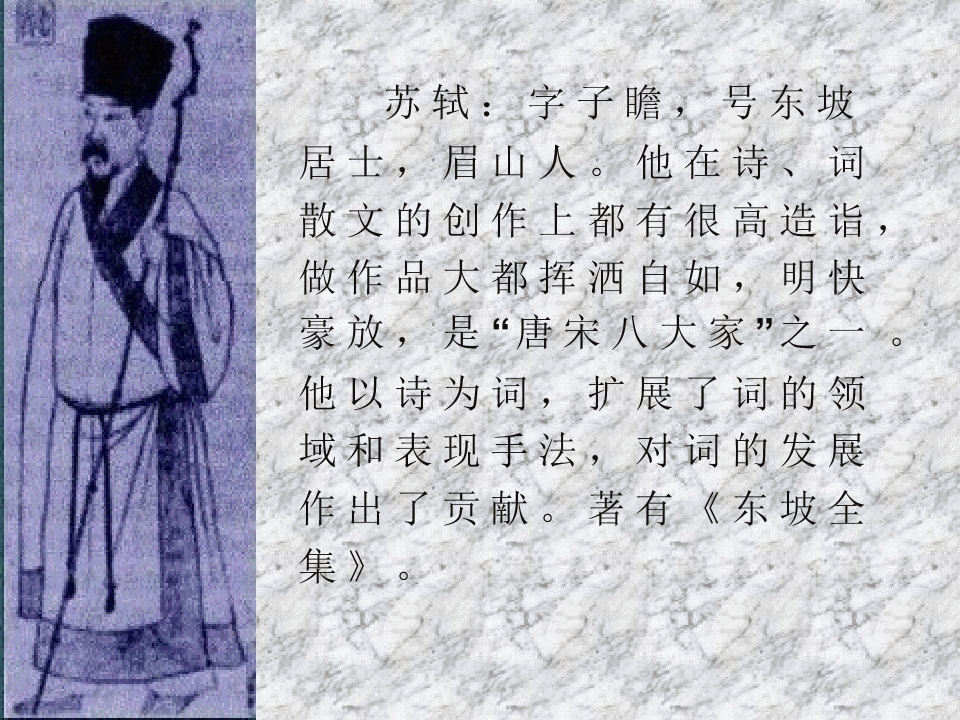 苏轼：字子瞻，号东坡
居士，眉山人。他在诗、词
散文的创作上都有很高造诣，
做作品大都挥洒自如，明快
豪放，是“唐宋八大家”之一。
他以诗为词，扩展了词的领
域和表现手法，对词的发展
作出了贡献。著有《东坡全
集》。